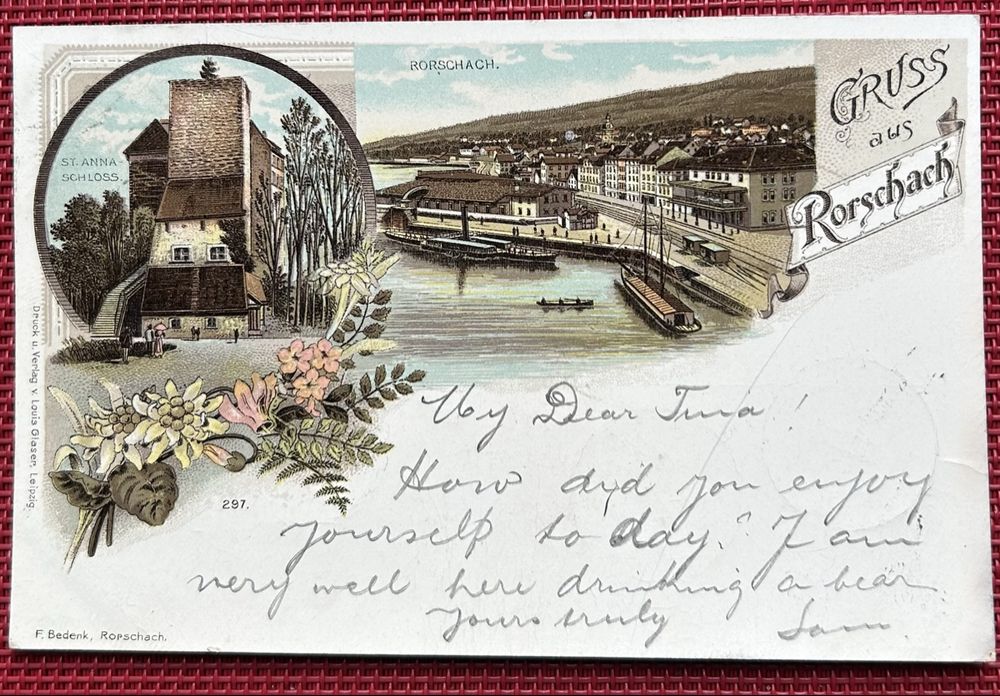 RORSCHACH.
GRUSS
aus
Rorschach
ST. ANNA-
SCHLOSS.
Druck u. Verlag v. Louis Glaser, Leipzig.
297.
My Dear Tina!
How did you enjoy
yourself to day? I am
very well here drinking a bear
Yours truly Sam.
F. Bedenk, Rorschach.